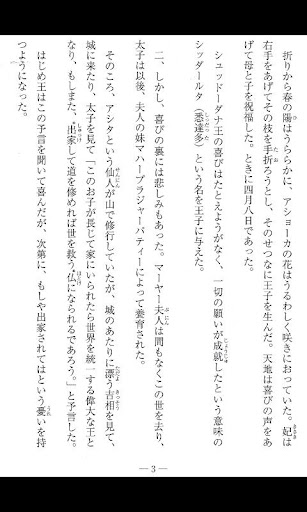 折りから春の陽はうららかに、アショーカの花はうるわしく咲きにおっていた。妃は
右手をあげてその枝を手折ろうとし、そのせつなに王子を生んだ。天地は喜びの声をあ
げて母と子を祝福した。ときに四月八日であった。
シュッドーダナ王の喜びはたとえようがなく、一切の願いが成就したという意味の
シッダールタ(悉達多)という名を王子に与えた。
二、しかし、喜びの裏には悲しみもあった。マーヤー夫人は間もなくこの世を去り、
太子は以後、夫人の妹マハープラジャーパティーによって養育された。
そのころ、アシタという仙人が山で修行していたが、城のあたりに漂う吉相を見て、
城に来たり、太子を見て「このお子が長じて家にいられたら世界を統一する偉大な王と
なり、もしまた、出家して道を修めれば世を救う仏になられるであろう。」と予言した。
はじめ王はこの予言を聞いて喜んだが、次第に、もしや出家されてはという憂いを持
つようになった。
—3—